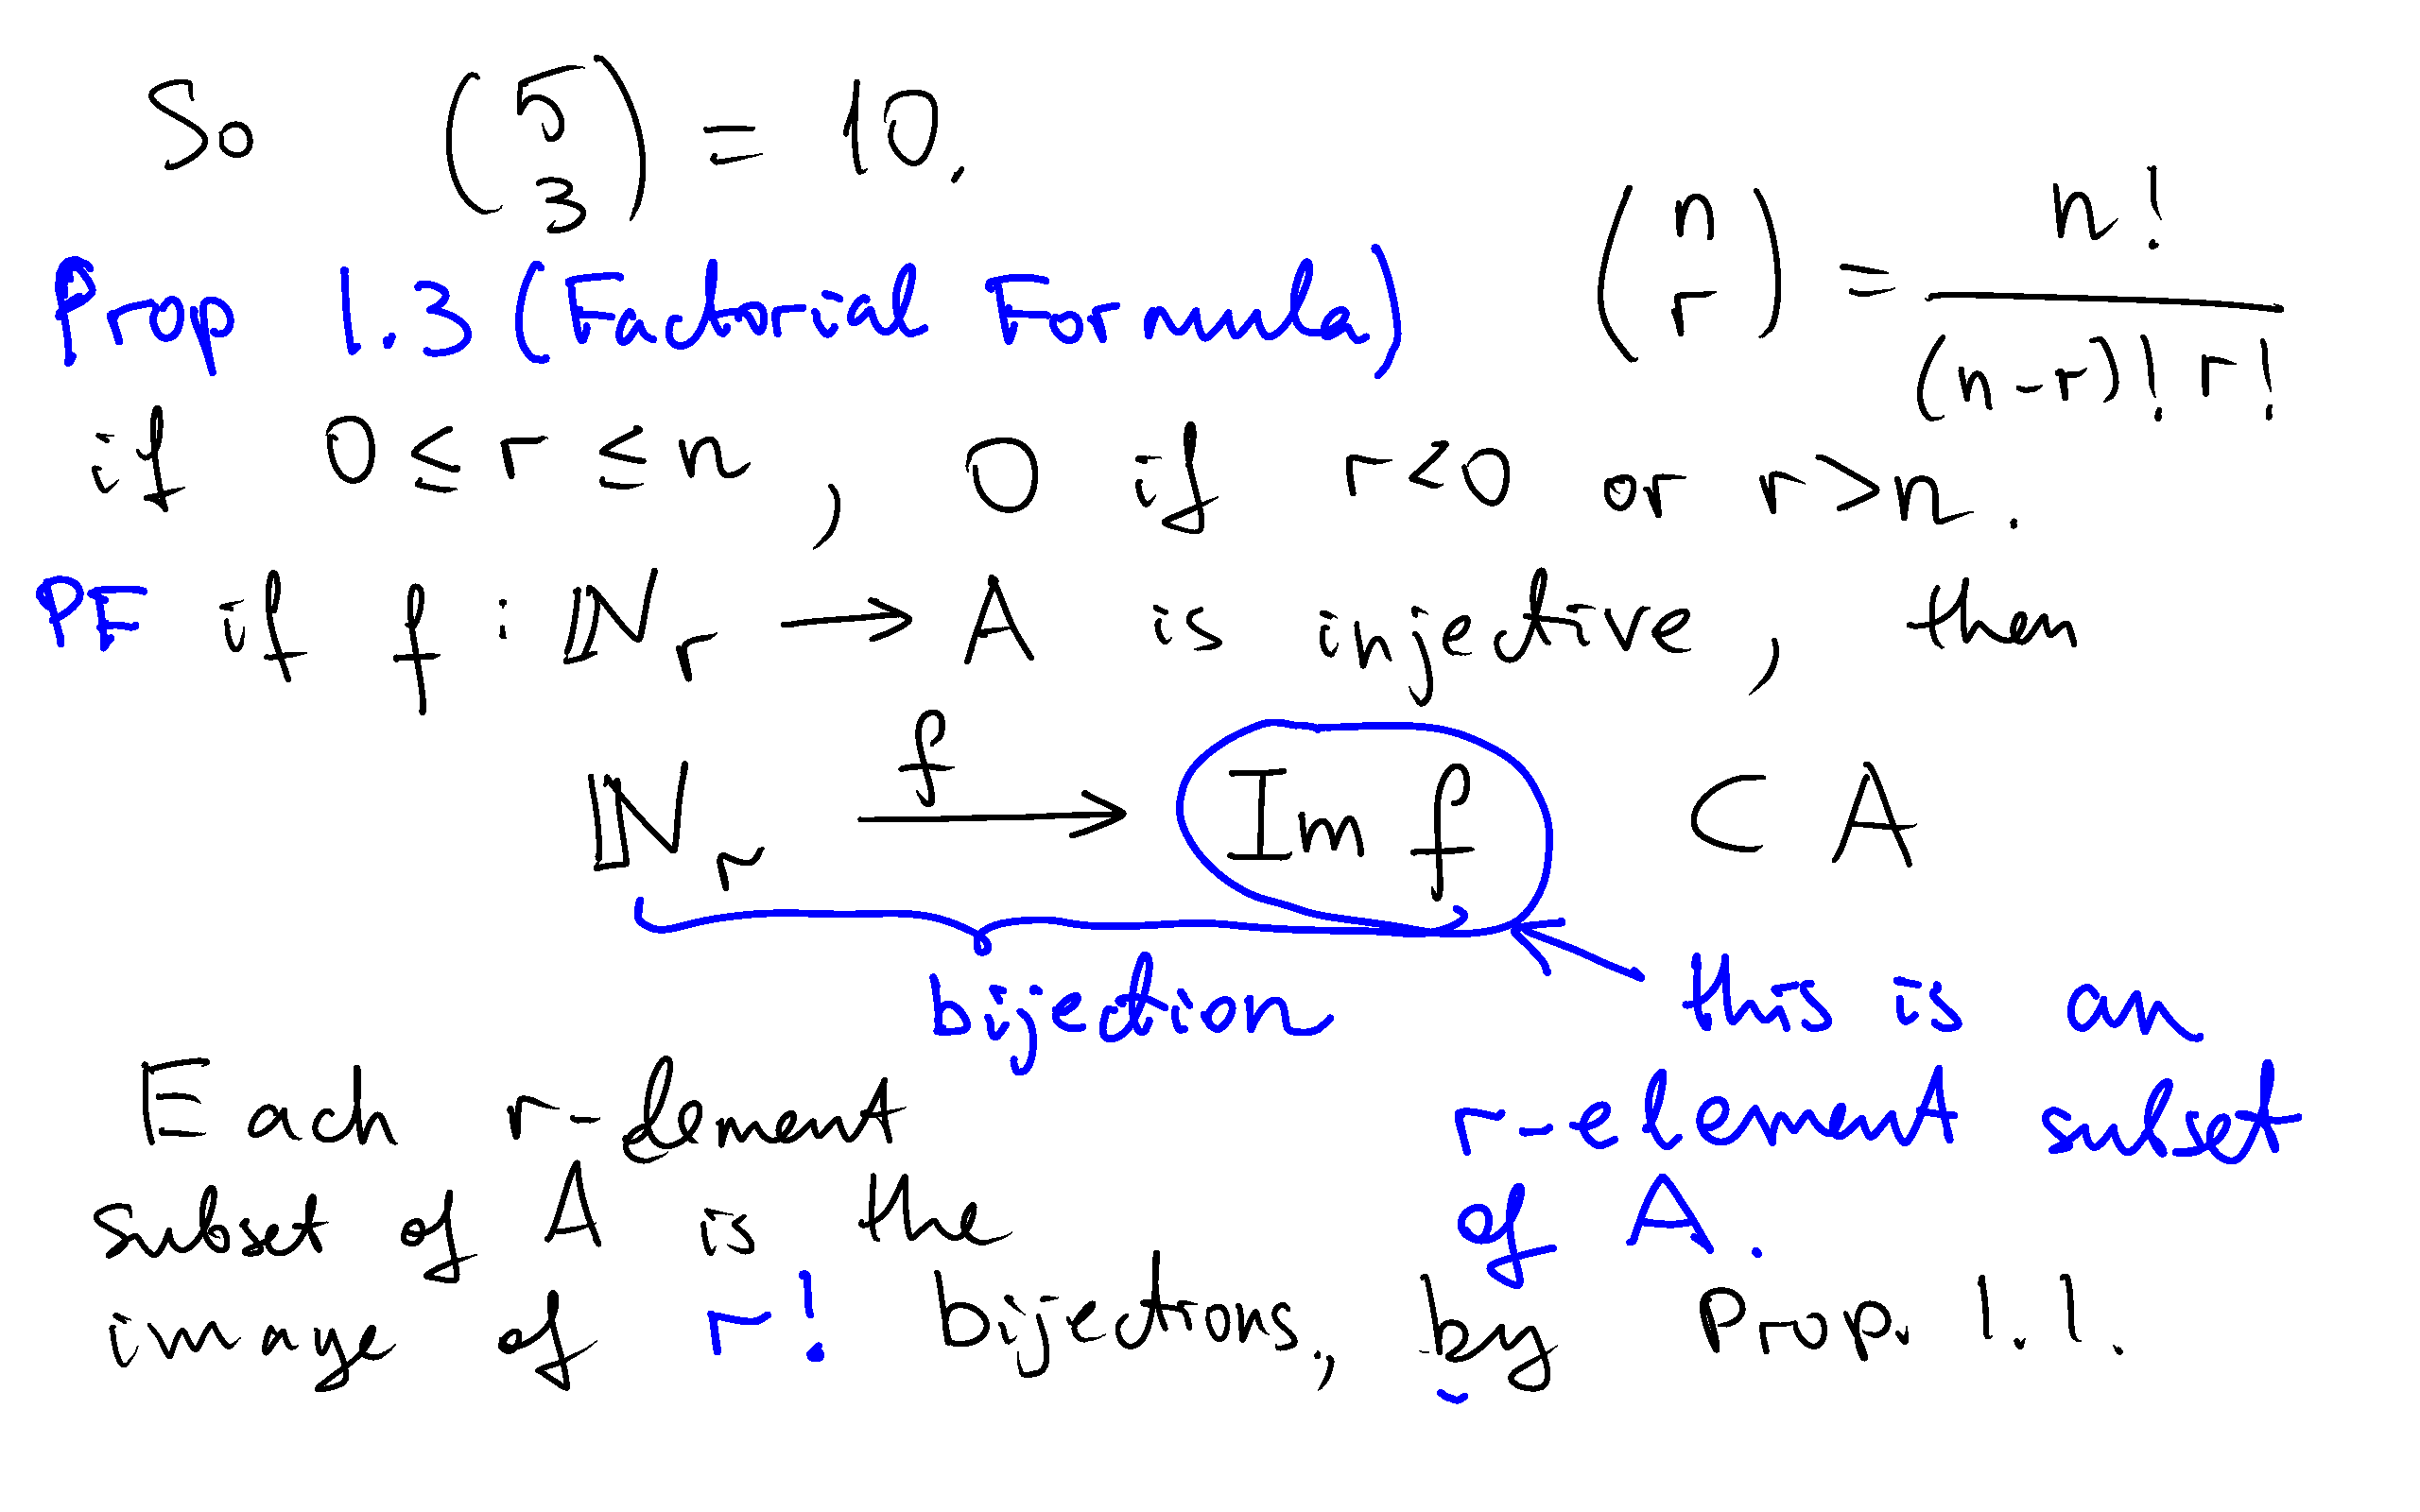 So (5 3) = 10.
Prop 1.3 (Factorial Formula) (n r) = n! / (n-r)! r!
if 0 ≤ r ≤ n, 0 if r<0 or r>n.
PF if f : ℕ_r → A is injective, then
ℕ_r —f→ Im f ⊂ A
bijection
this is an
r-element subset
of A.
Each r-element
subset of A is the
image of r! bijections, by Prop. 1.1.